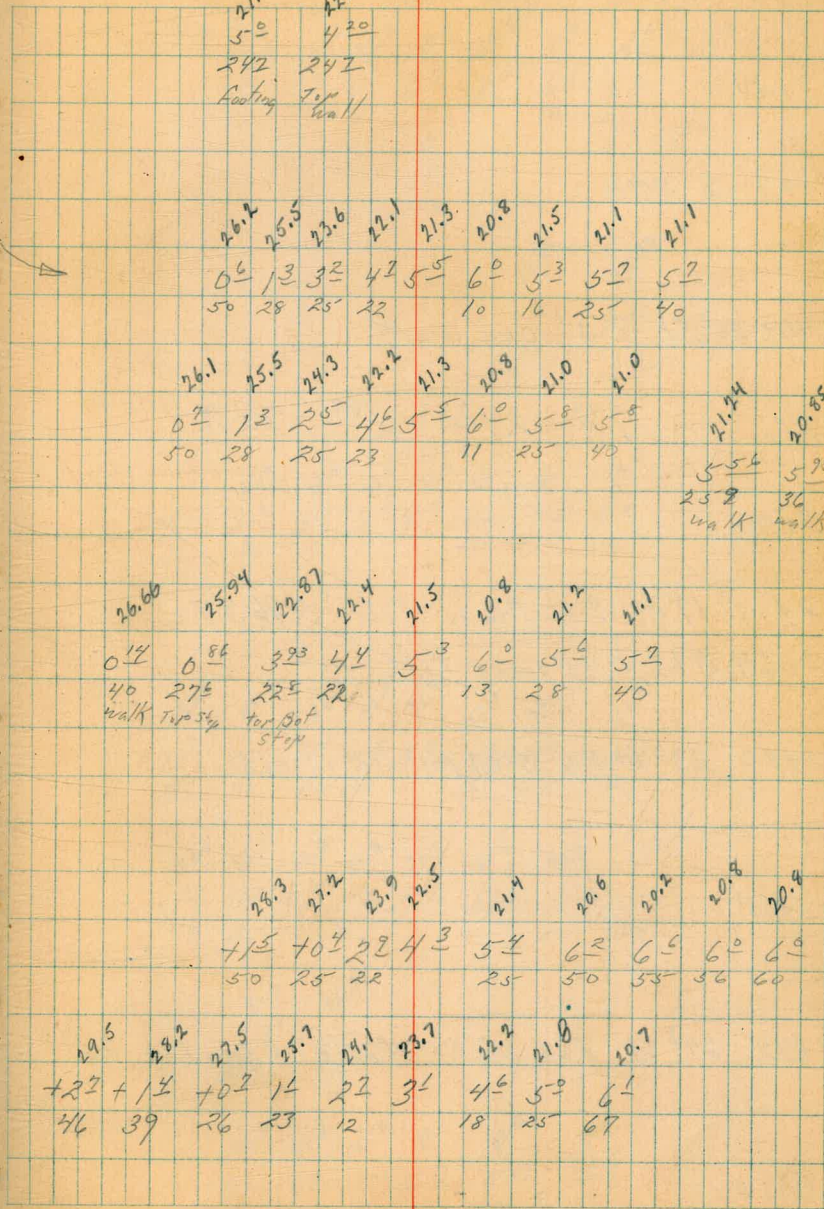 5⁰ 4²⁰
24⁷ 24⁷
Footing Top
wall
26.2 25.5 23.6 22.1 21.3 20.8 21.5 21.1 21.1
0⁶ 1³ 3² 4⁷ 5⁵ 6⁰ 5³ 5⁷ 5⁷
50 28 25 22 10 16 25 40
26.1 25.5 24.3 22.2 21.3 20.8 21.0 21.0
0⁷ 1³ 2⁵ 4⁶ 5⁵ 6⁰ 5⁸ 5⁸
50 28 25 23 11 25 40
21.24 20.85
5⁵⁶
25⁹ 36
walk walk
26.66 25.94 22.87 22.4 21.5 20.8 21.2 21.1
0¹⁴ 0⁸⁶ 3⁹³ 4⁴ 5³ 6⁰ 5⁶ 5⁷
40 27⁶ 22⁸ 22 13 28 40
walk Top Step top Bot
Step
28.3 27.2 23.9 22.5 21.4 20.6 20.2 20.8 20.8
+1⁵ +0⁴ 2⁹ 4³ 5⁴ 6² 6⁶ 6⁰ 6⁰
50 25 22 25 50 55 56 60
29.5 28.2 27.5 25.7 24.1 23.7 22.2 21.8 20.7
+2⁷ +1⁴ +0⁷ 1¹ 2⁷ 3¹ 4⁶ 5⁰ 6¹
46 39 26 23 12 18 25 67